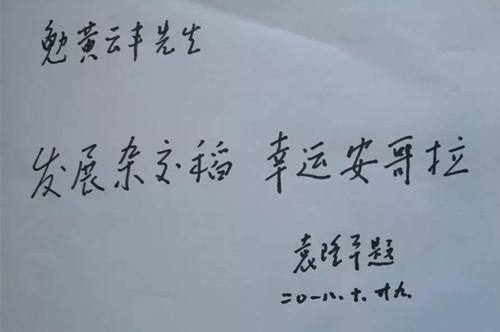 勉黄云丰先生
发展杂交稻 幸运安哥拉
袁隆平题
二〇一八.十.廿九.